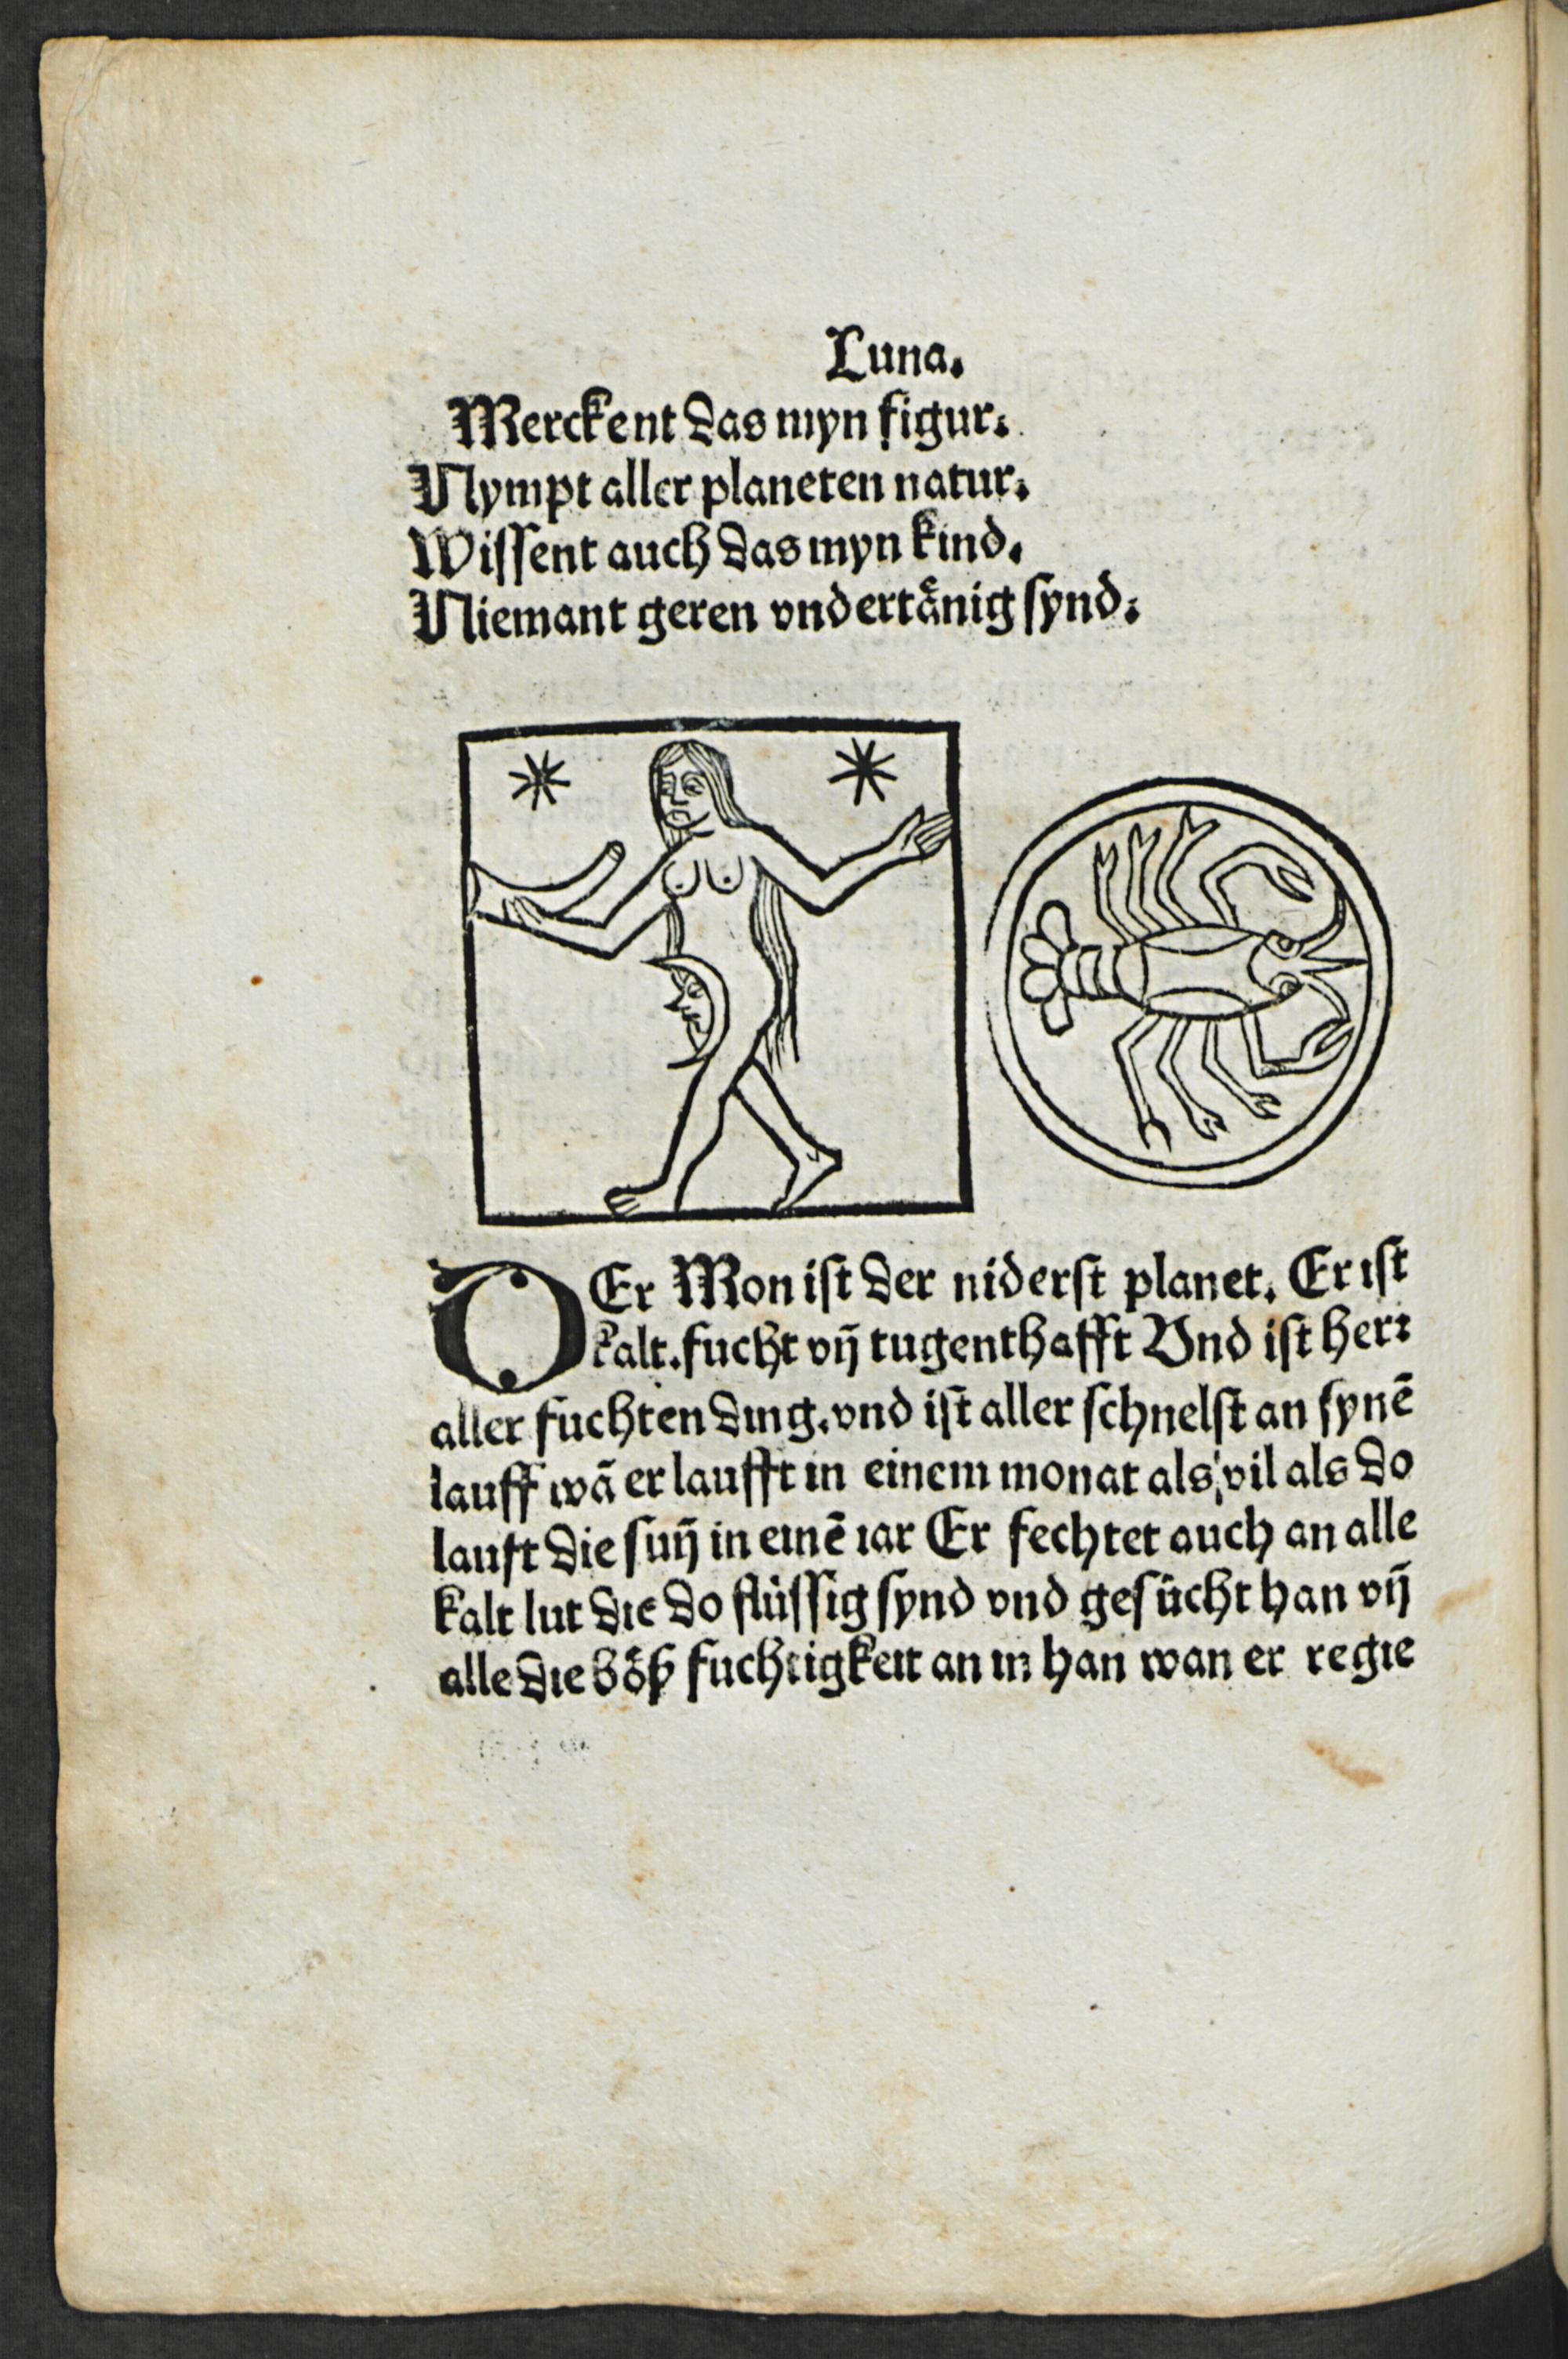 Luna.
Merckent das myn figur.
Nympt aller planeten natur.
Wissent auch das myn kind.
Niemant geren vndertånig synd.
DEr Mon ist der niderst planet. Er ist
kalt. fucht vñ tugenthafft Vnd ist her
aller fuchten ding. vnd ist aller schnelst an synē
lauff wā er laufft in einem monat als vil als do
lauft die suñ in einē iar Er fechtet auch an alle
kalt lut die do flüssig synd vnd gesücht han vñ
alle die böß fuchtigkeit an in han wan er regie